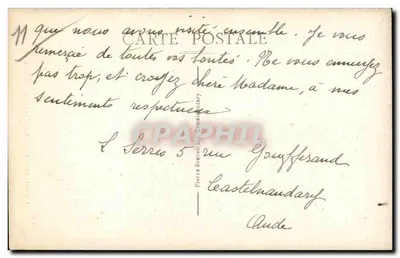 11
que nous avons visité ensemble. Je vous
CARTE POSTALE
remercie de toutes vos bontés. Ne vous ennuyez
pas trop, et croyez chère Madame, à mes
sentiments respectueux
L Serres 5 rue Goufferand
Castelnaudary
Aude
CPAPHIL